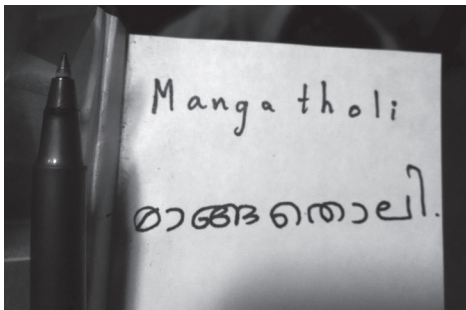 Manga tholi
മാങ്ങ തൊലി.